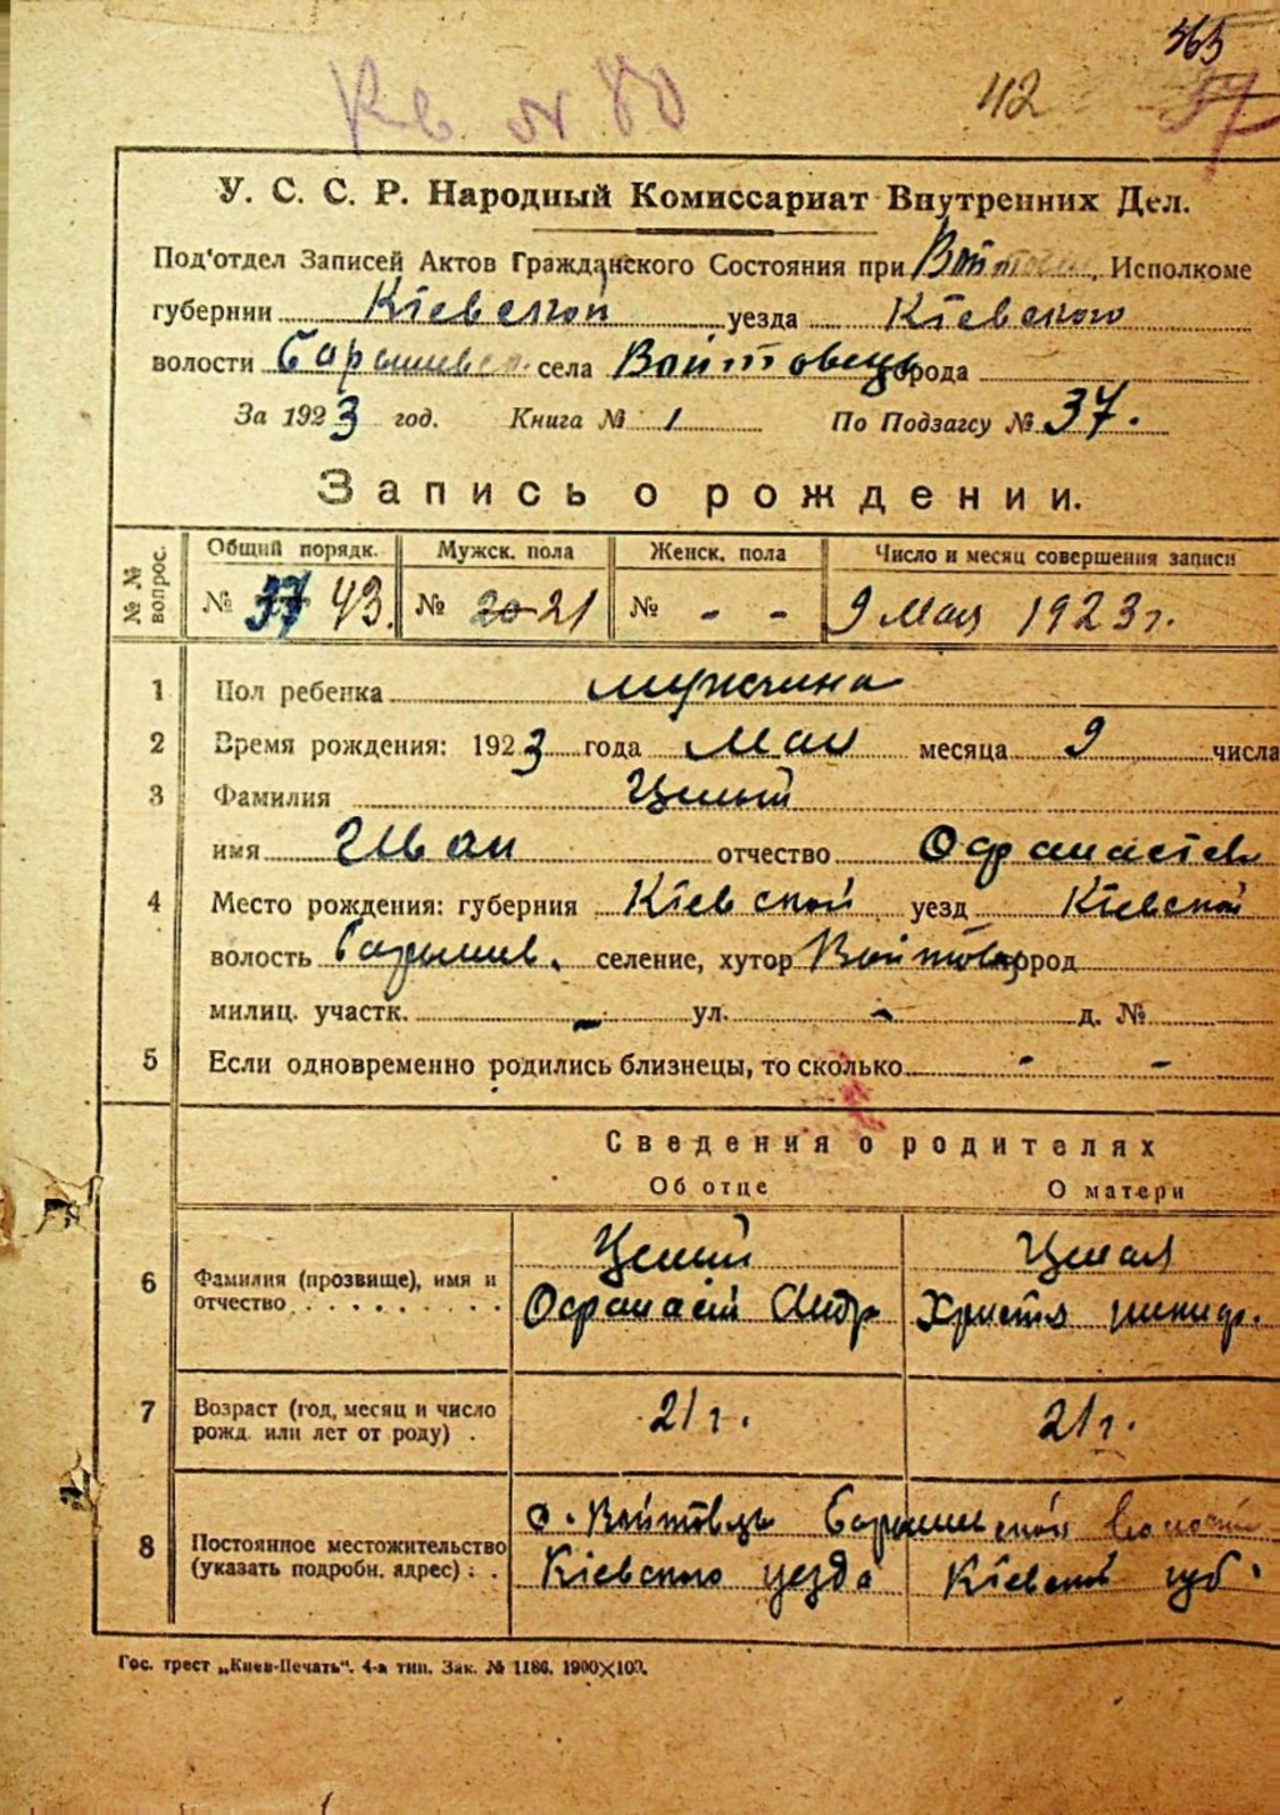 365
Кв № 80
42 37
У. С. С. Р. Народный Комиссариат Внутренних Дел.
Под'отдел Записей Актов Гражданского Состояния при Войтовец. Исполкоме
губернии Кіевской уезда Кіевского
волости Барышевск. села Войтовець города
За 1923 год. Книга № 1 По Подзагсу № 37.
Запись о рождении.
№ № вопрос. Общий порядк. Мужск. пола Женск. пола Число и месяц совершения записи
№ 37 43. № 20 21 № - - 9 Мая 1923 г.
1 Пол ребенка мужчина
2 Время рождения: 1923 года Мая месяца 9 числа
3 Фамилия Целый
имя Иван отчество Офанасіев
4 Место рождения: губерния Кіевской уезд Кіевской
волость Барышев. селение, хутор Войтовец город
милиц. участк. - ул. - д. №
5 Если одновременно родились близнецы, то сколько - -
Сведения о родителях
Об отце О матери
6 Фамилия (прозвище), имя и Целый Целая
отчество Офанасій Андр Христя никиф.
7 Возраст (год, месяц и число 21 г. 21 г.
рожд. или лет от роду)
8 Постоянное местожительство с. Войтовцы Барышевской волости
(указать подробн. адрес) Кіевского уезда Кіевской губ.
Гос. трест „Киев-Печать“. 4-а тип. Зак. № 1186. 1900×100.